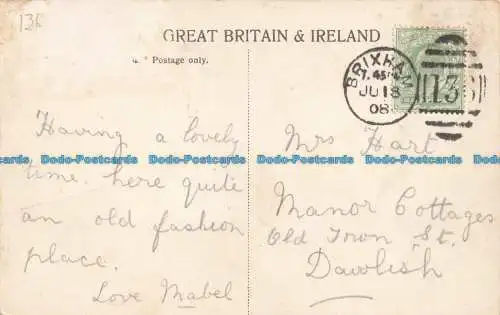 136
GREAT BRITAIN & IRELAND
Postage only.
BRIXHAM
7.45PM
JU 18
08
Having a lovely
time. here quite
an old fashion
place.
Love Mabel
Mrs Hart
Manor Cottages
Old Town St.
Dawlish
Dodo-Postcards Dodo-Postcards Dodo-Postcards
Dodo-Postcards Dodo-Postcards Dodo-Postcards